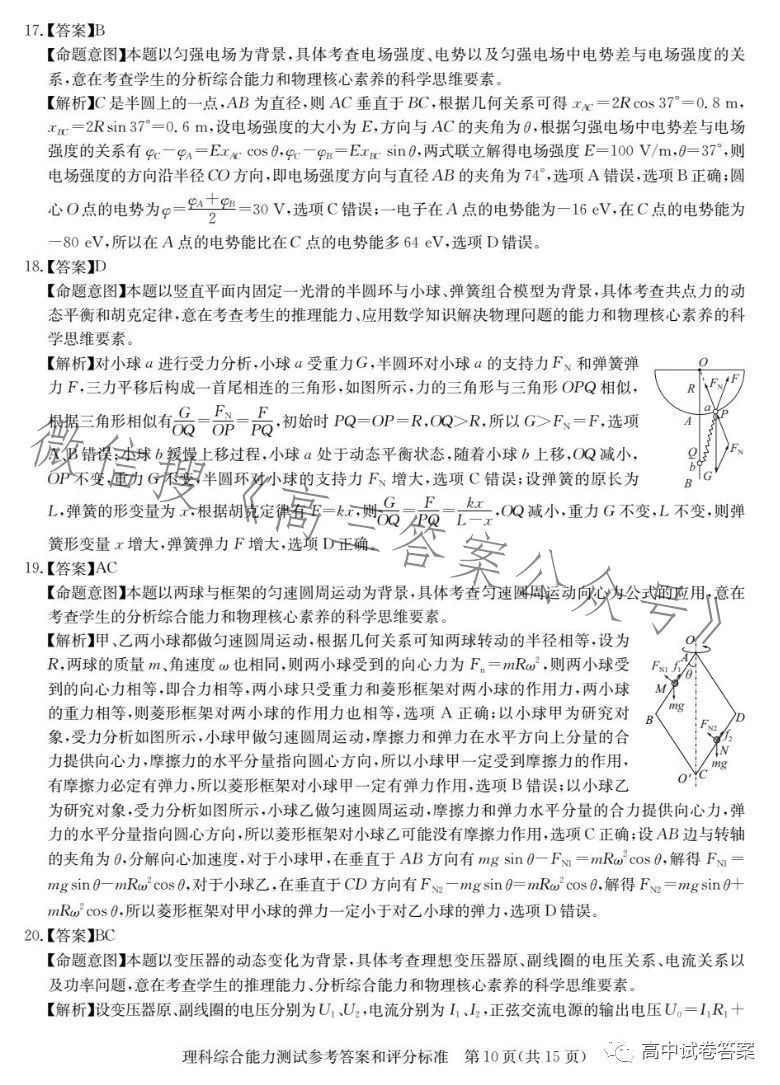 17.【答案】B
【命题意图】本题以匀强电场为背景,具体考查电场强度、电势以及匀强电场中电势差与电场强度的关
系,意在考查学生的分析综合能力和物理核心素养的科学思维要素。
【解析】C是半圆上的一点,AB为直径,则AC垂直于BC,根据几何关系可得 x_AC=2Rcos 37°=0.8 m,
x_BC=2Rsin 37°=0.6 m,设电场强度的大小为E,方向与AC的夹角为θ,根据匀强电场中电势差与电场
强度的关系有 φ_C-φ_A=Ex_AC cos θ,φ_C-φ_B=Ex_BC sin θ,两式联立解得电场强度E=100 V/m,θ=37°,则
电场强度的方向沿半径CO方向,即电场强度方向与直径AB的夹角为74°,选项A错误,选项B正确;圆
心O点的电势为φ=(φ_A+φ_B)/2=30 V,选项C错误;一电子在A点的电势能为-16 eV,在C点的电势能为
-80 eV,所以在A点的电势能比在C点的电势能多64 eV,选项D错误。
18.【答案】D
【命题意图】本题以竖直平面内固定一光滑的半圆环与小球、弹簧组合模型为背景,具体考查共点力的动
态平衡和胡克定律,意在考查考生的推理能力、应用数学知识解决物理问题的能力和物理核心素养的科
学思维要素。
【解析】对小球a进行受力分析,小球a受重力G,半圆环对小球a的支持力F_N和弹簧弹
力F,三力平移后构成一首尾相连的三角形,如图所示,力的三角形与三角形OPQ相似,
根据三角形相似有G/OQ=F_N/OP=F/PQ,初始时PQ=OP=R,OQ>R,所以G>F_N=F,选项
A、B错误;小球b缓慢上移过程,小球a处于动态平衡状态,随着小球b上移,OQ减小,
OP不变,重力G不变,半圆环对小球的支持力F_N增大,选项C错误;设弹簧的原长为
L,弹簧的形变量为x,根据胡克定律有F=kx,则G/OQ=F/PQ=kx/(L-x),OQ减小,重力G不变,L不变,则弹
簧形变量x增大,弹簧弹力F增大,选项D正确。
O
R
F_N
F
a
P
A
Q
b
B
G
F_N
19.【答案】AC
【命题意图】本题以两球与框架的匀速圆周运动为背景,具体考查匀速圆周运动向心力公式的应用,意在
考查学生的分析综合能力和物理核心素养的科学思维要素。
【解析】甲、乙两小球都做匀速圆周运动,根据几何关系可知两球转动的半径相等,设为
R,两球的质量m、角速度ω也相同,则两小球受到的向心力为F_n=mRω²,则两小球受
到的向心力相等,即合力相等,两小球只受重力和菱形框架对两小球的作用力,两小球
的重力相等,则菱形框架对两小球的作用力也相等,选项A正确;以小球甲为研究对
象,受力分析如图所示,小球甲做匀速圆周运动,摩擦力和弹力在水平方向上分量的合
力提供向心力,摩擦力的水平分量指向圆心方向,所以小球甲一定受到摩擦力的作用,
有摩擦力必定有弹力,所以菱形框架对小球甲一定有弹力作用,选项B错误;以小球乙
为研究对象,受力分析如图所示,小球乙做匀速圆周运动,摩擦力和弹力水平分量的合力提供向心力,弹
力的水平分量指向圆心方向,所以菱形框架对小球乙可能没有摩擦力作用,选项C正确;设AB边与转轴
的夹角为θ,分解向心加速度,对于小球甲,在垂直于AB方向有mg sin θ-F_N1=mRω²cos θ,解得F_N1=
mg sin θ-mRω²cos θ,对于小球乙,在垂直于CD方向有F_N2-mg sin θ=mRω²cos θ,解得F_N2=mg sin θ+
mRω²cos θ,所以菱形框架对甲小球的弹力一定小于对乙小球的弹力,选项D错误。
O
A
F_N1
f_1
θ
M
mg
B
D
F_N2
f_2
N
mg
O′
C
20.【答案】BC
【命题意图】本题以变压器的动态变化为背景,具体考查理想变压器原、副线圈的电压关系、电流关系以
及功率问题,意在考查学生的推理能力、分析综合能力和物理核心素养的科学思维要素。
【解析】设变压器原、副线圈的电压分别为U_1、U_2,电流分别为I_1、I_2,正弦交流电源的输出电压U_0=I_1R_1+
理科综合能力测试参考答案和评分标准 第10页(共15页)
微信搜《高三答案公众号》
高中试卷答案